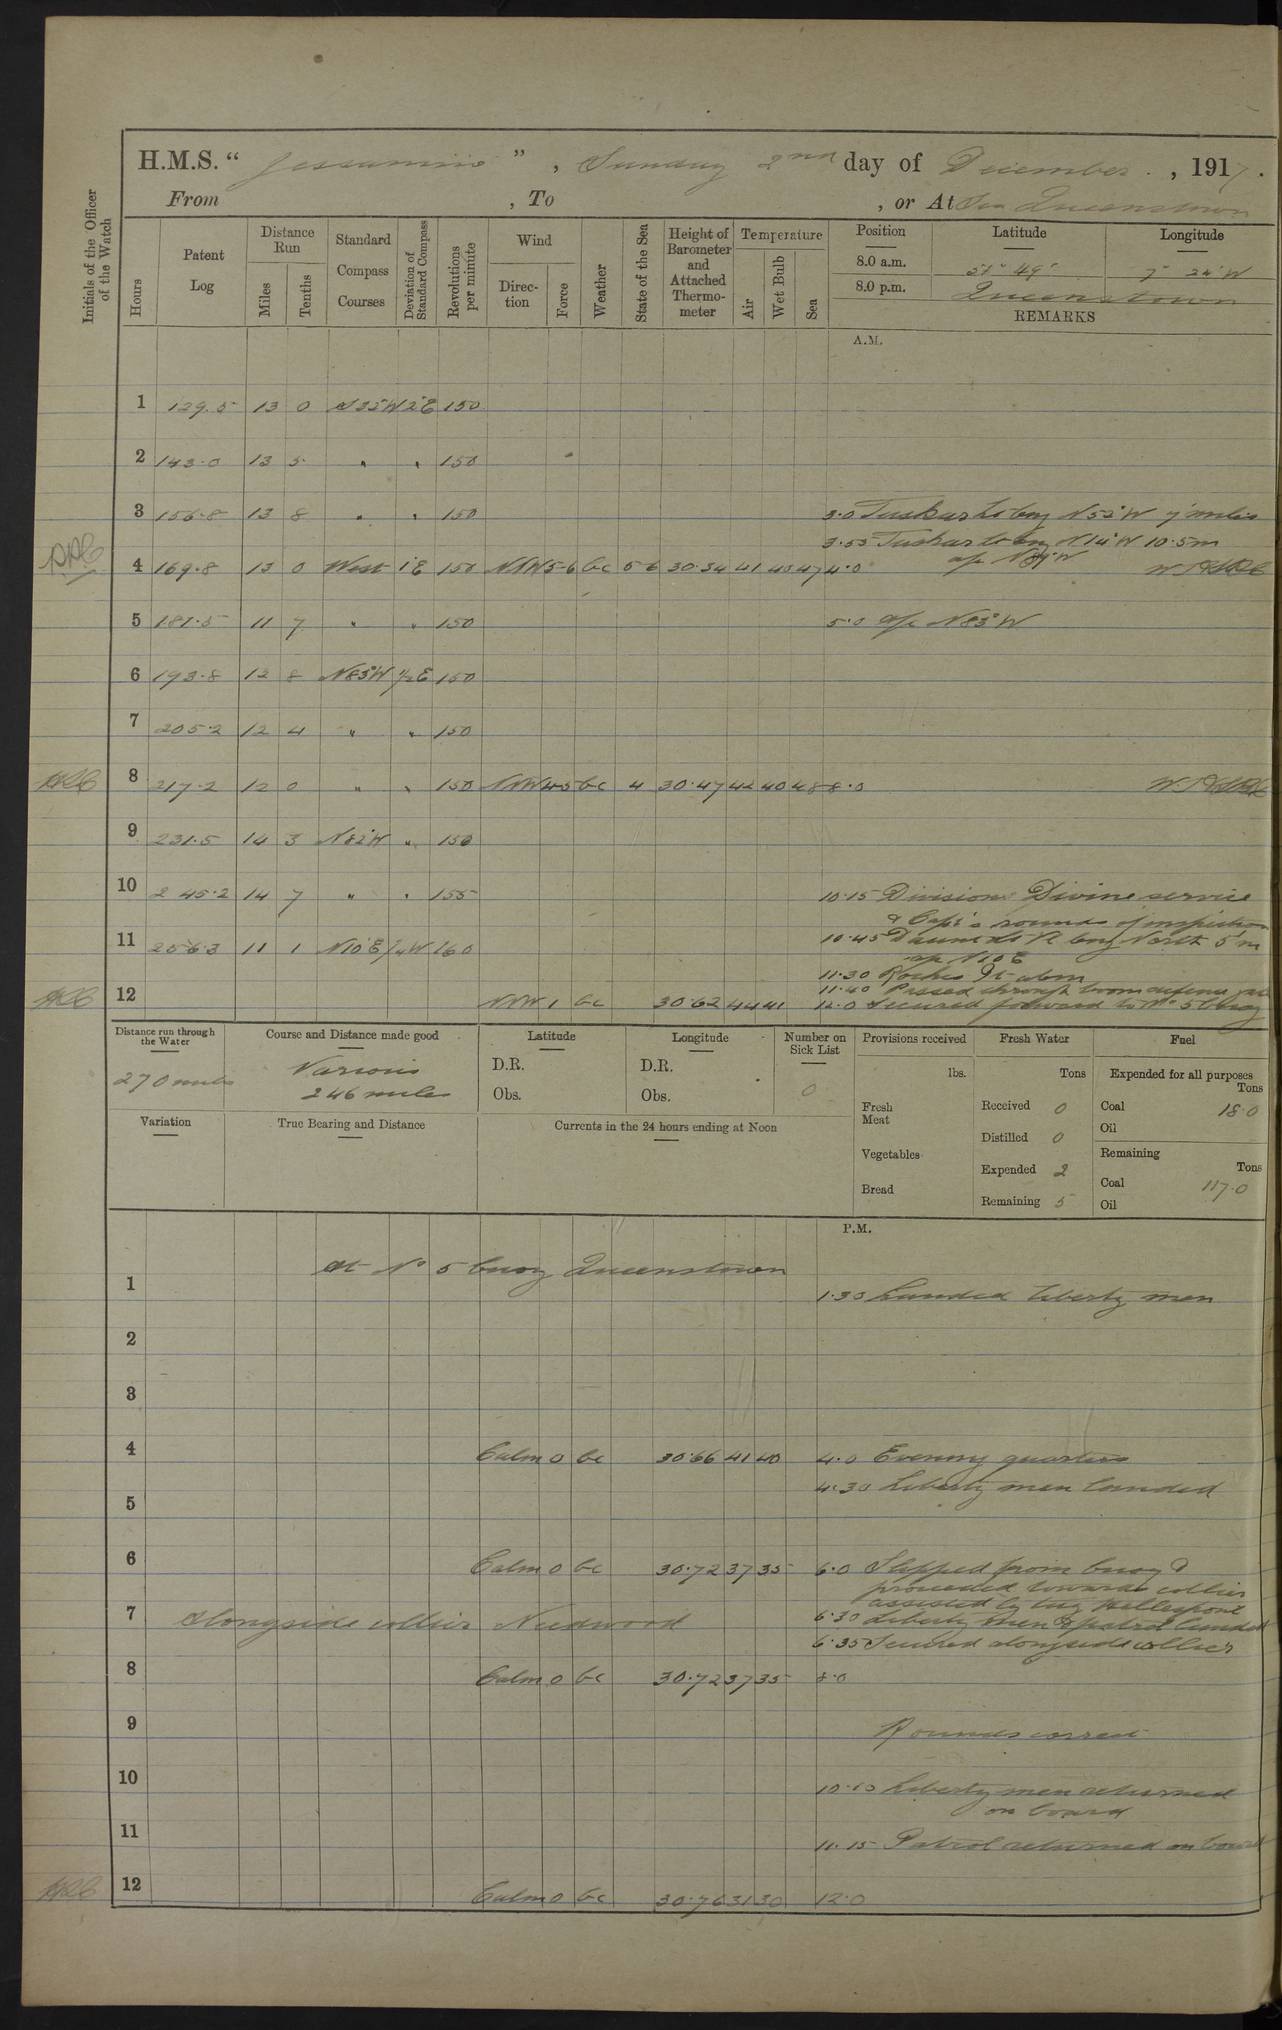 H.M.S. “ Jessamine ” , Sunday 2nd day of December . , 1917 .
From , To , or At Sea Queenstown
Initials of the Officer of the Watch
Hours
Patent Log
Distance Run
Miles
Tenths
Standard Compass Courses
Deviation of Standard Compass
Revolutions per minute
Wind
Direction
Force
Weather
State of the Sea
Height of Barometer and Attached Thermometer
Temperature
Air
Wet Bulb
Sea
Position Latitude Longitude
8.0 a.m. 51° 49' 7° 24' W
8.0 p.m. Queenstown
REMARKS
A.M.
1 129.5 13 0 S35°W 2°E 150
2 143.0 13 5 " " 150
3 156.8 13 8 " " 150 3.0 Tuskar Lt brg N 52°W 7 miles
3.55 Tuskar Lt brg N14°W 10.5 m
4 169.8 13 0 West 1°E 150 NNW 5-6 bc 56 30.34 41 40 47 4.0 a/c N89°W
5 181.5 11 7 " " 150 5.0 a/c N83°W
6 193.8 12 8 N83°W ½E 150
7 205.2 12 4 " " 150
8 217.2 12 0 " " 150 NNW 4-5 bc 4 30.47 42 40 48 8.0
9 231.5 14 3 N82°W " 150
10 245.2 14 7 " " 155 10.15 Divisions Divine service
& Capt's rounds of inspection
11 256.3 11 1 N10°E ¼W 160 10.45 Daunt Lt V brg North 5'm
a/c N10E
11.30 Roches Pt abm
11.40 Passed through boom defence gate
12 NNW 1 bc 30.62 44 41 12.0 Secured forward to No 5 buoy
Distance run through the Water
270 miles
Course and Distance made good
Various
246 miles
Latitude
D.R.
Obs.
Longitude
D.R.
Obs.
Number on Sick List
0
Provisions received
lbs.
Fresh Meat
Vegetables
Bread
Fresh Water
Tons
Received 0
Distilled 0
Expended 2
Remaining 5
Fuel
Expended for all purposes
Tons
Coal 18.0
Oil
Remaining
Tons
Coal 117.0
Oil
Variation
True Bearing and Distance
Currents in the 24 hours ending at Noon
P.M.
At No 5 buoy Queenstown
1 1.30 Landed liberty men
2
3
4 Calm 0 bc 30.66 41 40 4.0 Evening quarters
4.30 Liberty men landed
5
6 Calm 0 bc 30.72 37 35 6.0 Slipped from buoy &
proceeded towards collier
assisted by tug Hellespont
7 Alongside collier Needwood 6.30 Liberty men & patrol landed
6.35 Secured alongside collier
8 Calm 0 bc 30.72 37 35 8.0
9 Rounds correct
10 10.10 Liberty men returned
on board
11 11.15 Patrol returned on board
12 Calm 0 bc 30.76 31 30 12.0